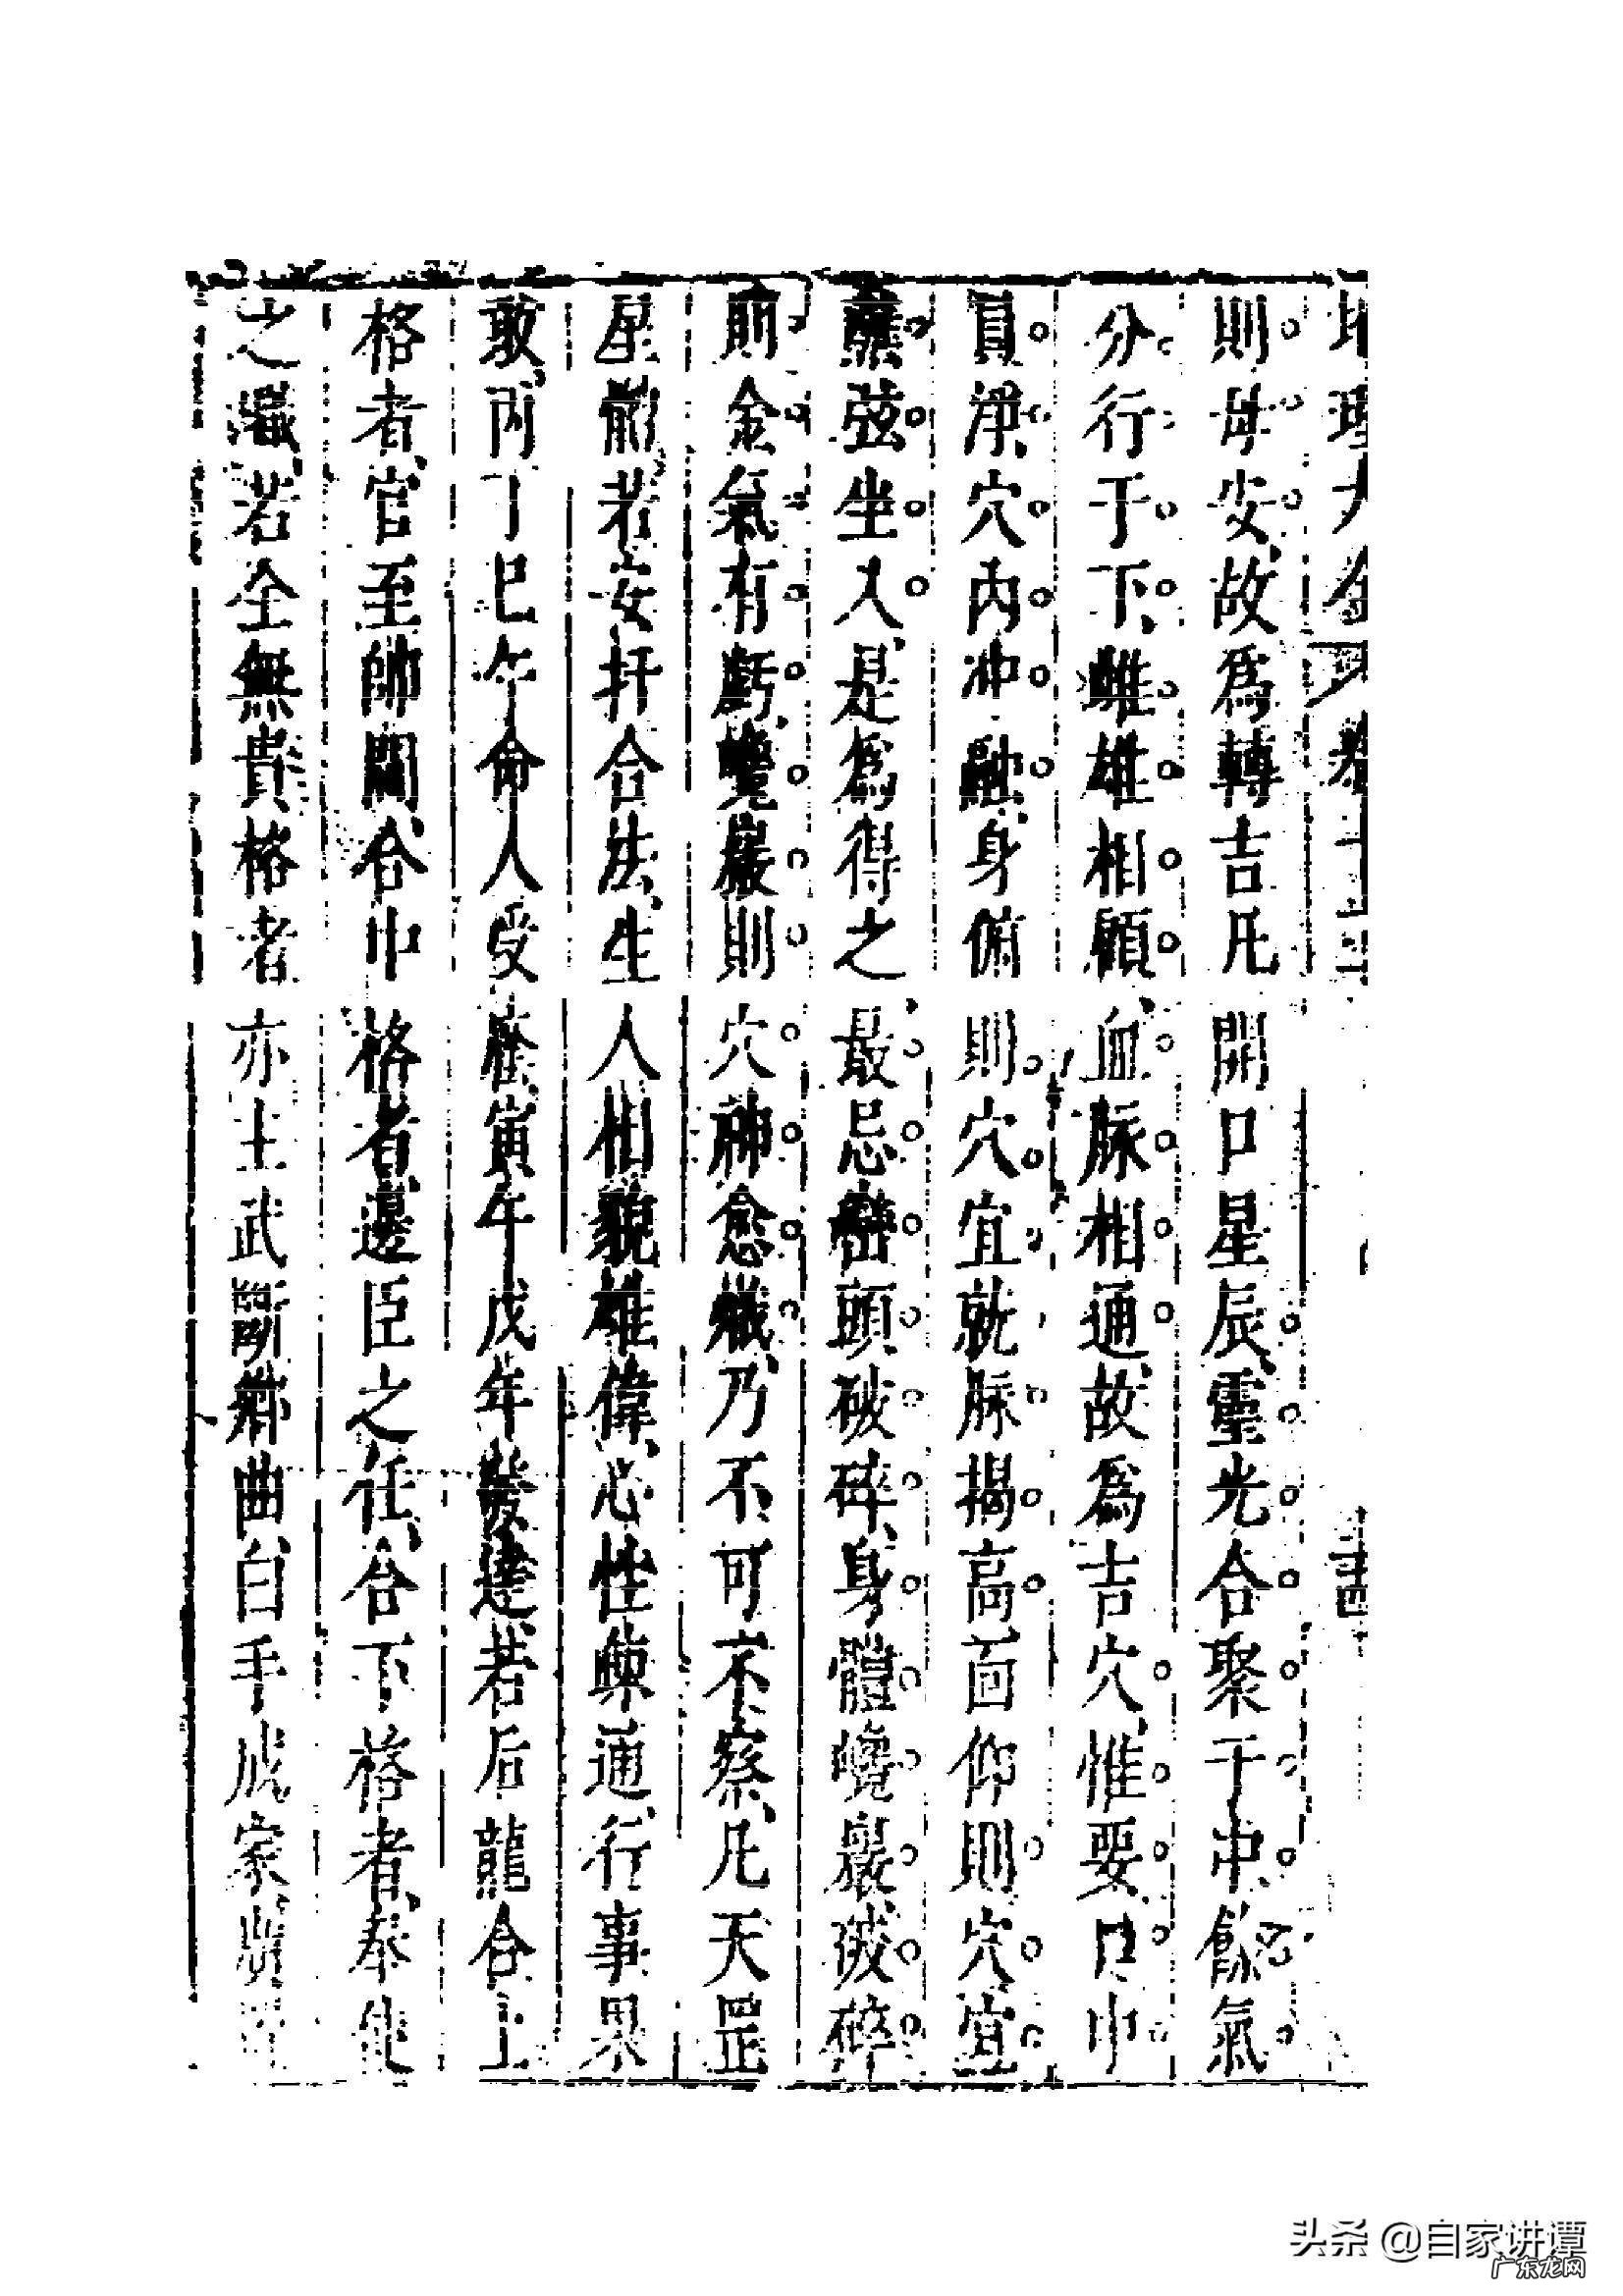 地理大全 卷十五
則母安故為轉吉凡開口星辰靈光合聚于中餘氣
分行于下雌雄相顧血脉相通故為吉穴惟要口中
員淨穴內冲融身俯則穴宜就脉揭高面仰則穴宜
弦坐入是為得之最忌頭破碎身體巉巖破碎
則金氣有虧巉巖則穴神愈 乃不可不察凡天罡
星前者安扦合法生人相貌雄偉心性 通行事果
敢丙丁巳午命人受 寅午戌年發達若后龍合上
格者官至帥閫合中格者邊臣之任合下格者奉使
之職若全無貴格者亦主武斷鄉曲白手成家
头条 @自家讲谭
广东龙网